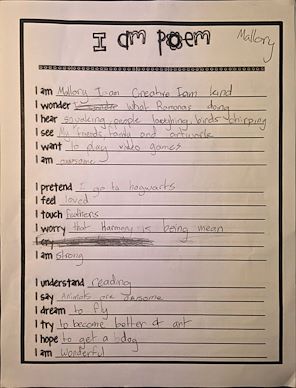 I am poem
Mallory
I am Mallory I am Creative I am kind
I wonder what Ramonas doing
I hear squeaking, people laughing, birds chirping
I see My friends, family and artwork
I want to play video games
I am awesome
I pretend I go to hogwarts
I feel loved
I touch feathers
I worry that Harmony is being mean
I cry
I am strong
I understand reading
I say Animals are awesome
I dream to fly
I try to become better at art
I hope to get a dog
I am Wonderful